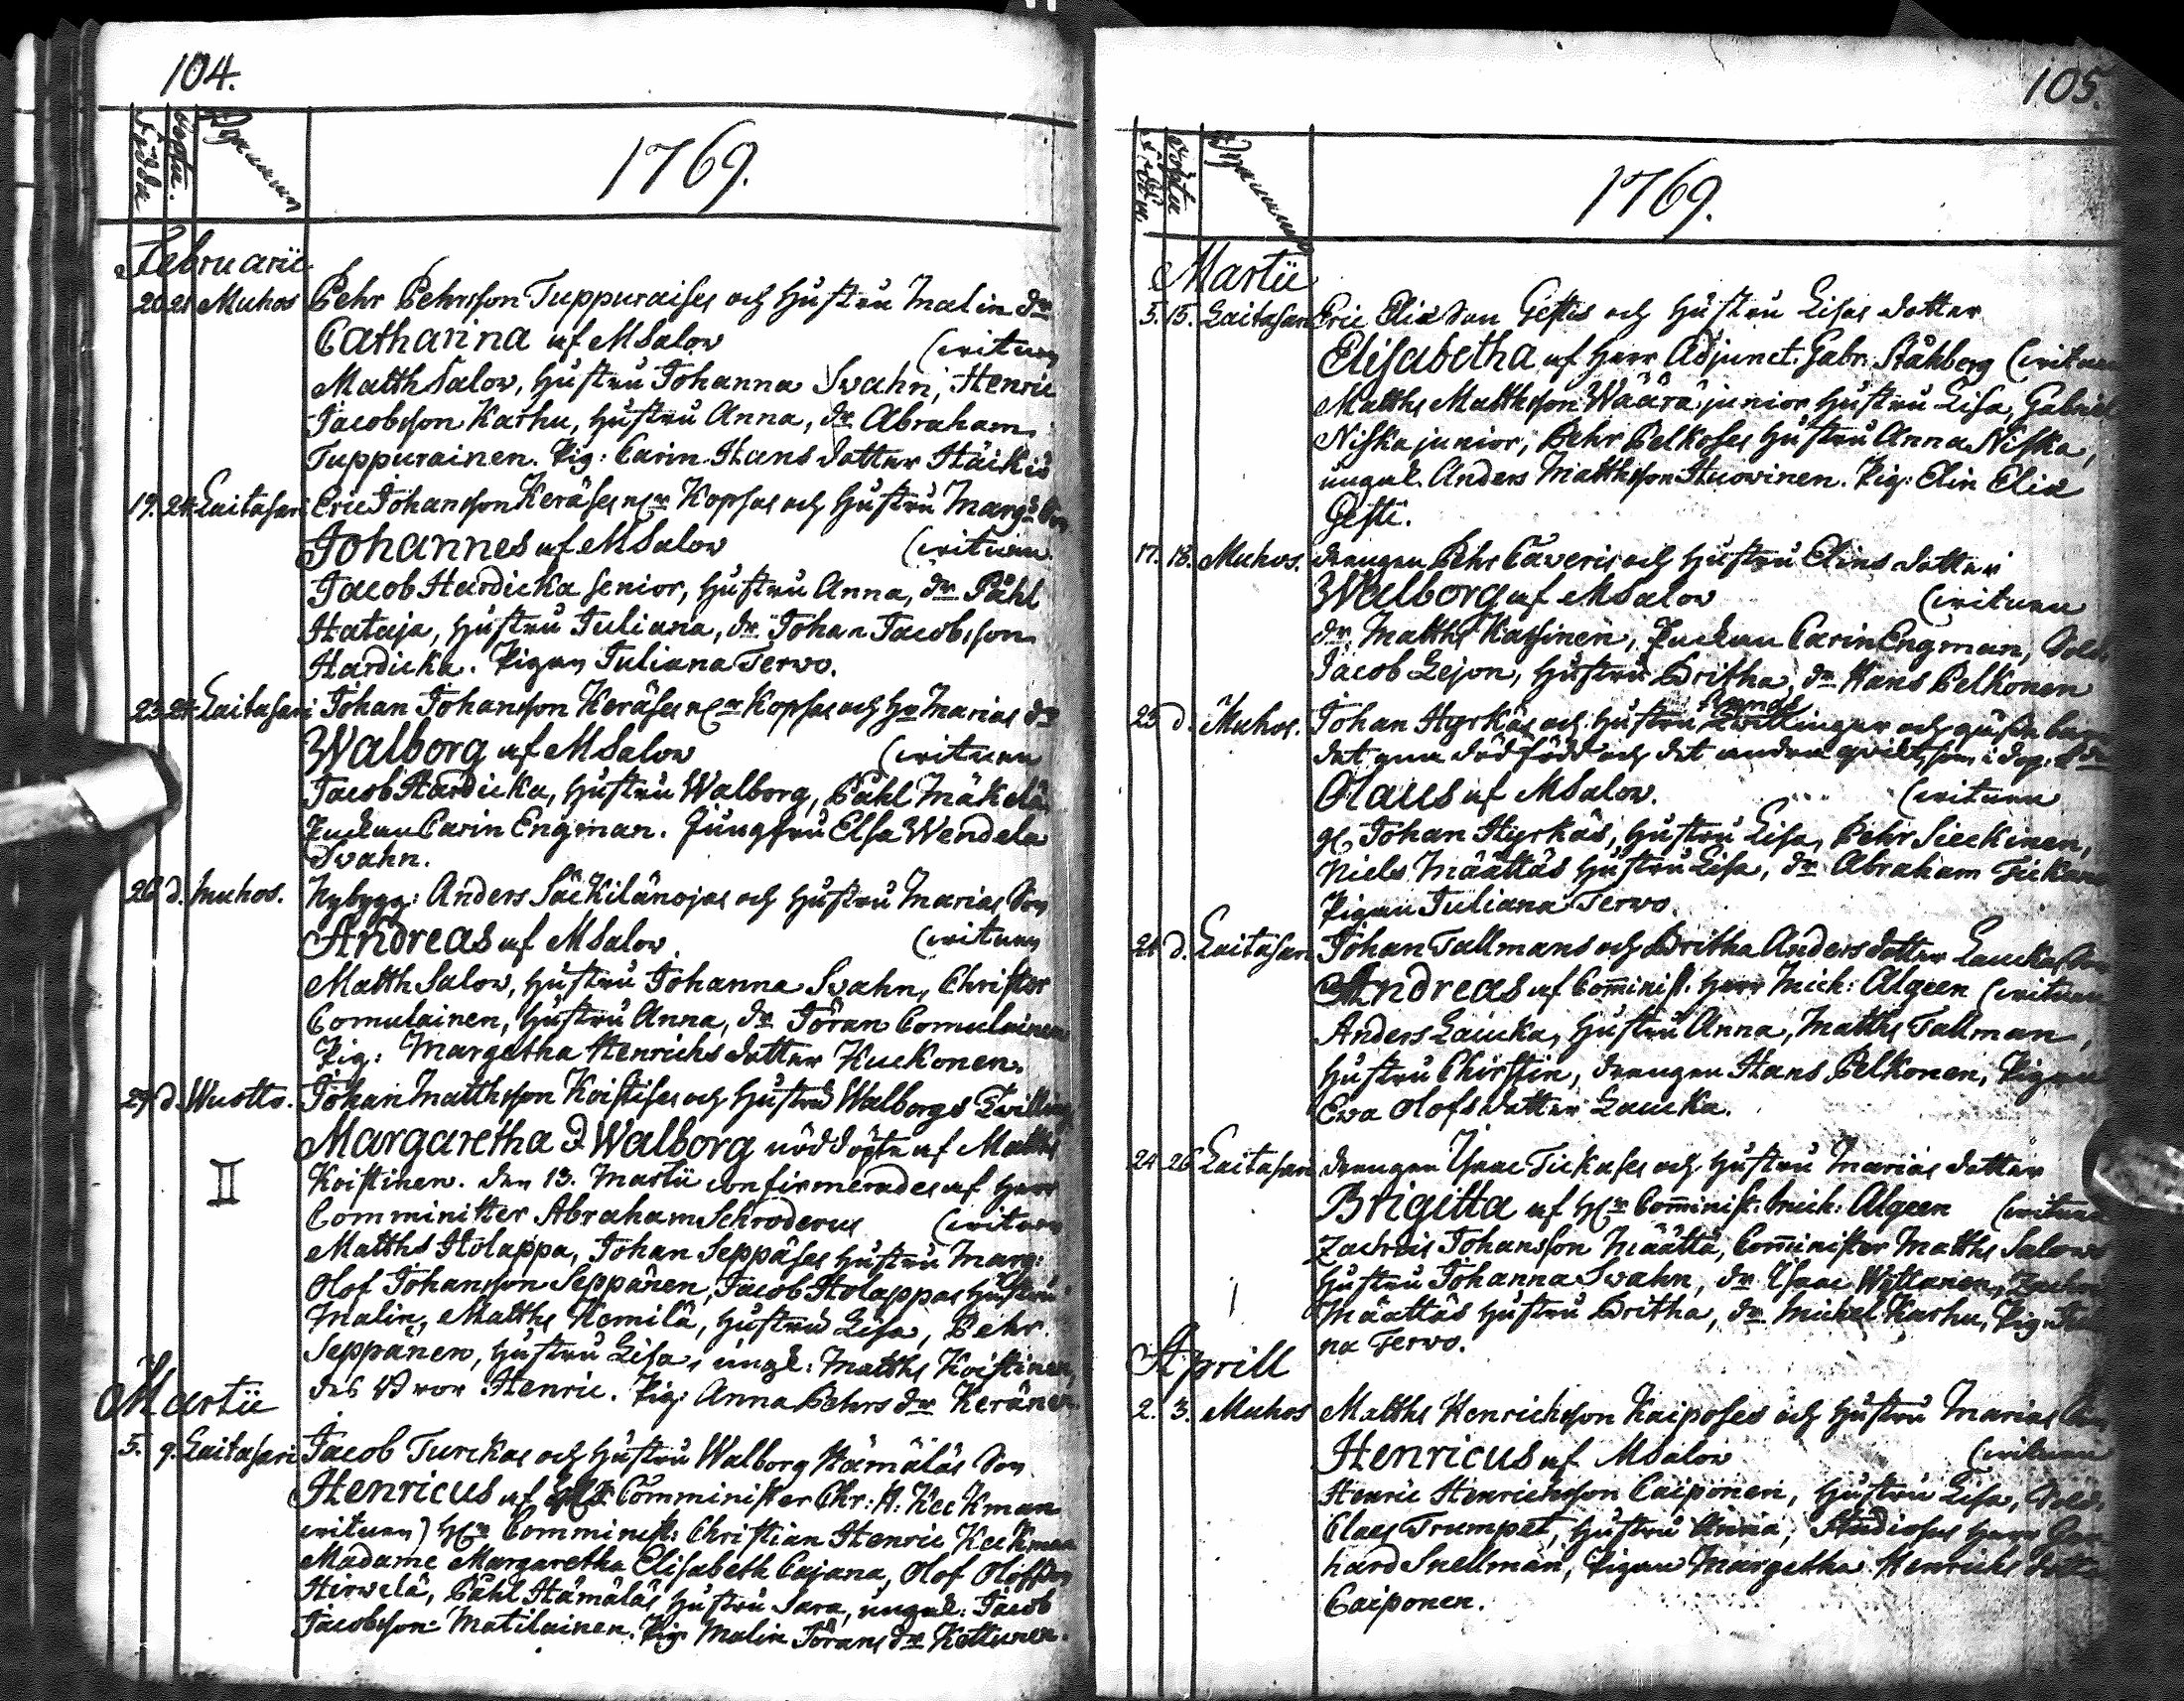 104.
Födda
Döpta.
Byarnam
1769.
Februarii
20. 21 Muhos Pehr Pehrsson Tuppuraises och hustru Malin dr
Catharina af MSalov (crituen
Matth Salov, hustru Johanna Svahn, Henric
Jacobsson Karhu, hustru Anna, dr Abraham
Tuppurainen. Pig: Carin Hans dotter Häikiö
19. 24. Laitasari Eric Johansson Keräses Kopsas och hustru Marg: Son
Johannes af MSalov (crituen
Jacob Hardicka senior, hustru Anna, dr Påhl
Hataja, hustru Juliana, dr Johan Jacobsson
Hardicka. Pigan Juliana Terwo.
23. 24. Laitasari Johan Johansson Keräses Kopsas och Hu Marias dr
Walborg af MSalov (crituen
Jacob Hardicka, hustru Walborg, Påhl Mäkelä
Enckan Carin Engman. Jungfru Elsa Wendela
Svahn.
26 d. Muhos. Nybygg: Anders Säckilänojas och hustru Marias Son
Andreas af MSalov. (crituen
Matth Salov, hustru Johanna Svahn, Christer
Comulainen, hustru Anna, dr Jöran Comulainen
Pig: Margetha Henrichs dotter Kuckonen.
27 d. Wuotto. Johan Matthsson Koistises och hustru Walborgs Tvilling
Margaretha & Walborg nöddöpte af Matths
Koistinen. den 13. Martii confirmerades af Herr
Comminister Abraham Schroderus (crituen
Matths Holappa, Johan Seppäses hustru Marg:
Olof Johansson Seppänen, Jacob Holappas hustru
Malin, Matths Kemilä, hustru Lisa, Pehr
Seppänen, hustru Lisa, ungk: Matths Koistinen,
des Svor Henric. Pig: Anna Pehrs dr Keränen.
Martii
5. 9. Laitasari Jacob Turckas och hustru Walborg Hämäläs Son
Henricus af Comminister Chr: H: Keckman
crituen) Hr Comminist: Christian Henric Keckman
Madame Margaretha Elisabeth Cajana, Olof Olofsson
Hirwelä, Påhl Hämäläs hustru Sara, ungk: Jacob
Jacobsson Matilainen. Pig. Malin Jörans dr Kettunen.
105.
Födda
Döpta
Byarnamn
1769.
Martii
5. 15. Laitasari Eric Eliæ son Gestis och hustru Lisas dotter
Elisabetha af Herr Adjunct. Gabr. Ståhberg (crituen
Matths Matthsson Wäärä junior hustru Lisa, Gabriel
Niska junior, Pehr Pelkoses hustru Anna Niska,
ungk. Anders Matthsson Huovinen. Pig: Elin Eliæ
Gesti.
17. 18. Muhos. drengen Pehr Caveris och hustru Elins dotter
Walborg af MSalov (crituen
dr Matths Kassinen, Enckan Carin Engman, Sold:
Jacob Lejon, hustru Britha, dr Hans Pelkonen
25 d. Muhos. Johan Hyrkäs och hustru Tvillingar och
det ena dödfödt och det andra
Olaus af MSalov. (crituen
Johan Hyrkäs, hustru Lisa, Pehr Sieckinen,
Niels Määttäs hustru Lisa, dr Abraham Tickanen
Pigan Juliana Terwo.
21 d. Laitasari Johan Tallmans och Britha Anders dotter Lauckas Son
Andreas af Cominist. Herr Mich: Algeen (crituen
Anders Laucka, hustru Anna, Matths Tallman,
hustru Chirstin, drengen Hans Pelkonen, Pigan
Ewa Olofs dotter Laucka.
24 26 Laitasari drengen Isaac Tickases och hustru Marias dotter
Brigitta af Hr Cominist: Mich: Algeen (crituen
Zachris Johansson Määttä, Cominister Matths Salovs
hustru Johanna Svahn, dr Isaac
Määttäs hustru Britha, dr Mickel Karhu, Pig: Julia
na Terwo.
Aprill
2. 3. Muhos Matths Henrichsson Kaiposes och hustru Marias Son
Henricus af MSalov (crituen
Henric Henrichsson Caiponen, hustru Lisa, Sold.
Claes Trumpet, hustru Anna, Studiosus Herr
hard Snellman, Pigan Margetha Henrichs dotter
Caiponen.